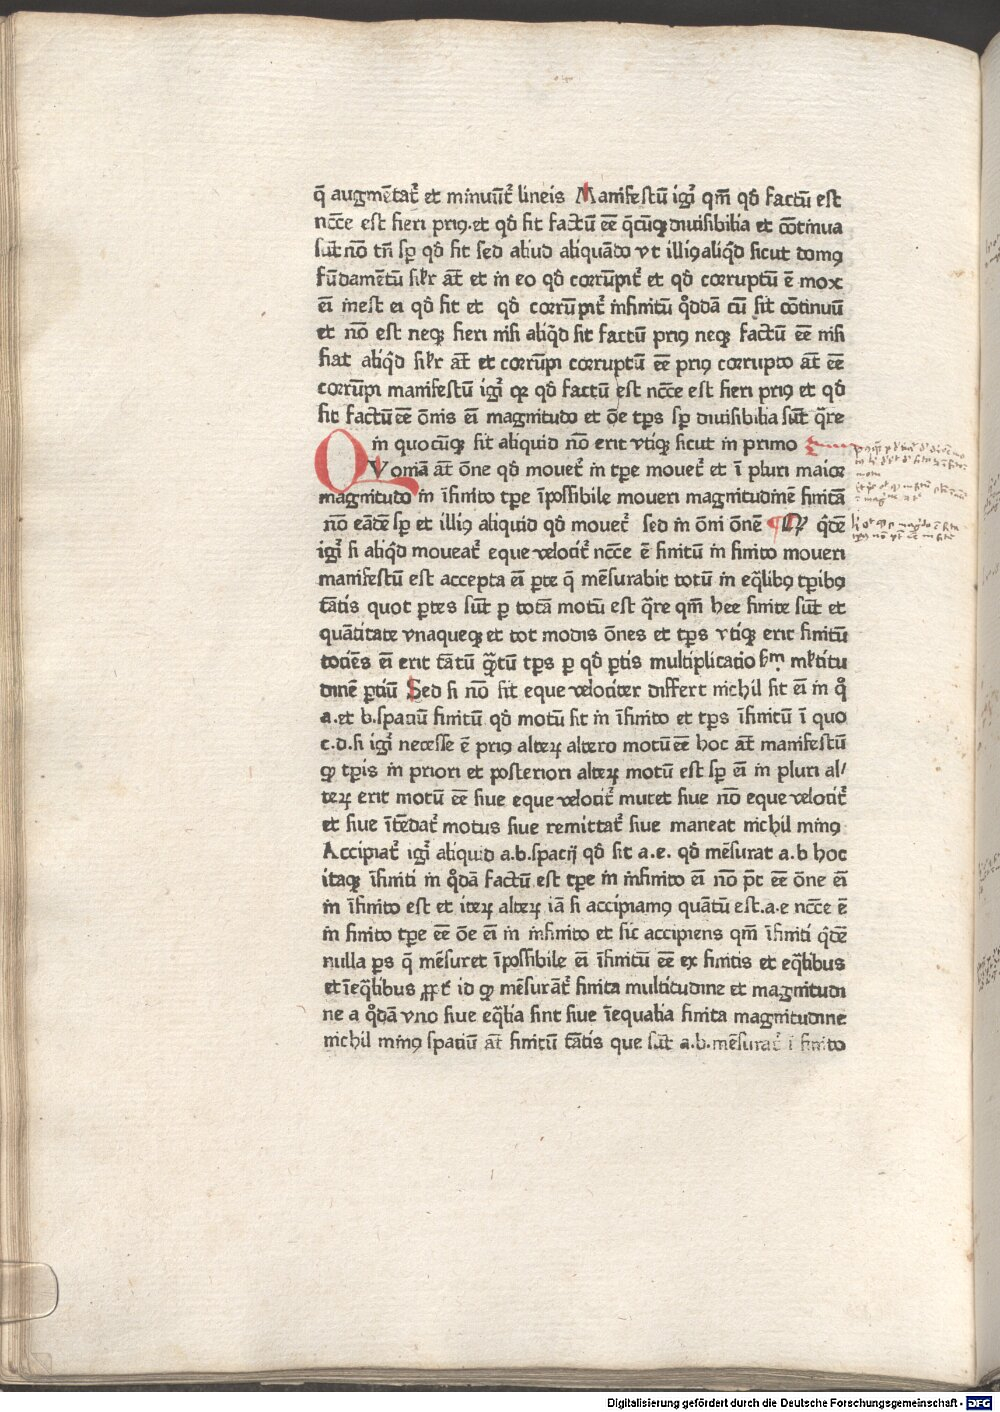 q̄ augmētat᷑ et minuūt᷑ lineis Manifestū igi᷑ qm̄ qđ factū est
nc̄ce est fieri priꝰ.et qđ fit factū eē q̄cūqꝫ diuisibilia et cōtinua
sūt nō tn̄ sp̄ qđ fit sed aliud aliquādo vt illiꝰ aliq̇d sicut domꝰ
fūdamētū sil̄r āt et in eo qđ corrūpit᷑ et qđ corruptū ē mox
eī inest ei qđ fit et qđ corrūpit᷑ infinitū q̊ddā cū sit cōtinuū
et nō est neqꝫ fieri nisi aliq̇d sit factū priꝰ neqꝫ factū eē nisi
fiat aliq̇d sil̄r āt et corrūpi corruptū eē priꝰ corrupto āt eē
corrūpi manifestū igi᷑ qꝛ qđ factū est nc̄ce est fieri priꝰ et qđ
fit factū eē ōnis eī magnitudo et ōe tp̄s sp̄ diuisibilia sūt q̄re
in quocūqꝫ fit aliquid nō erit vtiqꝫ sicut in primo
QVoniā āt ōne qđ mouet᷑ in tp̄e mouet᷑ et ī pluri maior
magnitudo in īfinito tp̄e īpossibile moueri magnitudinē finitā
nō eādē sp̄ et illiꝰ aliquid qđ mouet᷑ sed in ōni ōnē ¶ Qꝙ q̇dē
igi᷑ si aliq̇d moueat᷑ eque velocit᷑ nc̄ce ē finitū in finito moueri
manifestū est accepta eī ꝑte q̄ mēsurabit totū in eq̄libꝰ tp̄ibꝰ
tātis quot ꝑtes sūt ꝑ totā motū est q̄re qm̄ hee finite sūt et
quātitate vnaqueqꝫ et tot modis ōnes et tp̄s vtiqꝫ erit finitū
tociēs eī erit tātū q̄tū tp̄s ꝑ qđ ꝑtis multiplicatio sm̄ ml̄titu
dinē ꝑtiū Sed si nō sit eque velociter differt nichil sit eī in q̊
a.et b.spatiū finitū qđ motū sit in īfinito et tp̄s īfinitū ī quo
c.d.si igi᷑ necesse ē priꝰ alteꝝ altero motū eē hoc āt manifestū
ꝙ tp̄is in priori et posteriori alteꝝ motū est sp̄ eī in pluri al/
teꝝ erit motū eē siue eque velocit᷑ mutet siue nō eque velocit᷑
et siue ītēdat᷑ motus siue remittat᷑ siue maneat nichil minꝰ
Accipiat᷑ igi᷑ aliquid a.b.spacij qđ sit a.e. qđ mēsurat a.b hoc
itaqꝫ īfiniti in q̊dā factū est tp̄e in infinito eī nō pt̄ eē ōne eī
in īfinito est et iteꝝ alteꝝ iā si accipiamꝰ quātū est.a.e nc̄ce ē
in finito tp̄e eē ōe eī in infinito et sic accipiens qm̄ īfiniti q̇dē
nulla ꝑs q̄ mēsuret īpossibile eī īfinitū eē ex finitis et eq̄libus
et īeq̄libus ꝓpt᷑ id ꝙ mēsurāt᷑ finita multitudine et magnitudi
ne a q̊dā vno siue eq̄lia sint siue īequalia finita magnitudine
nichil minꝰ spatiū āt finitū tātis que sūt a.b.mēsurat᷑ ī finito
Digitalisierung gefördert durch die Deutsche Forschungsgemeinschaft - DFG